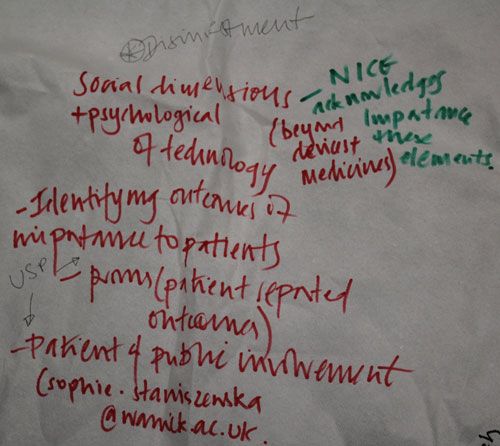 ⊛ Disinvestment
Social dimensions
+ psychological
of technology
(beyond
devices +
medicines)
NICE
– acknowledges
impatance
these
elements.
– Identifying outcomes of
impatance to patients
USP
– proms (patient reported
outcomes)
– Patient & public involvement
(sophie.staniszewska
@warwick.ac.uk.